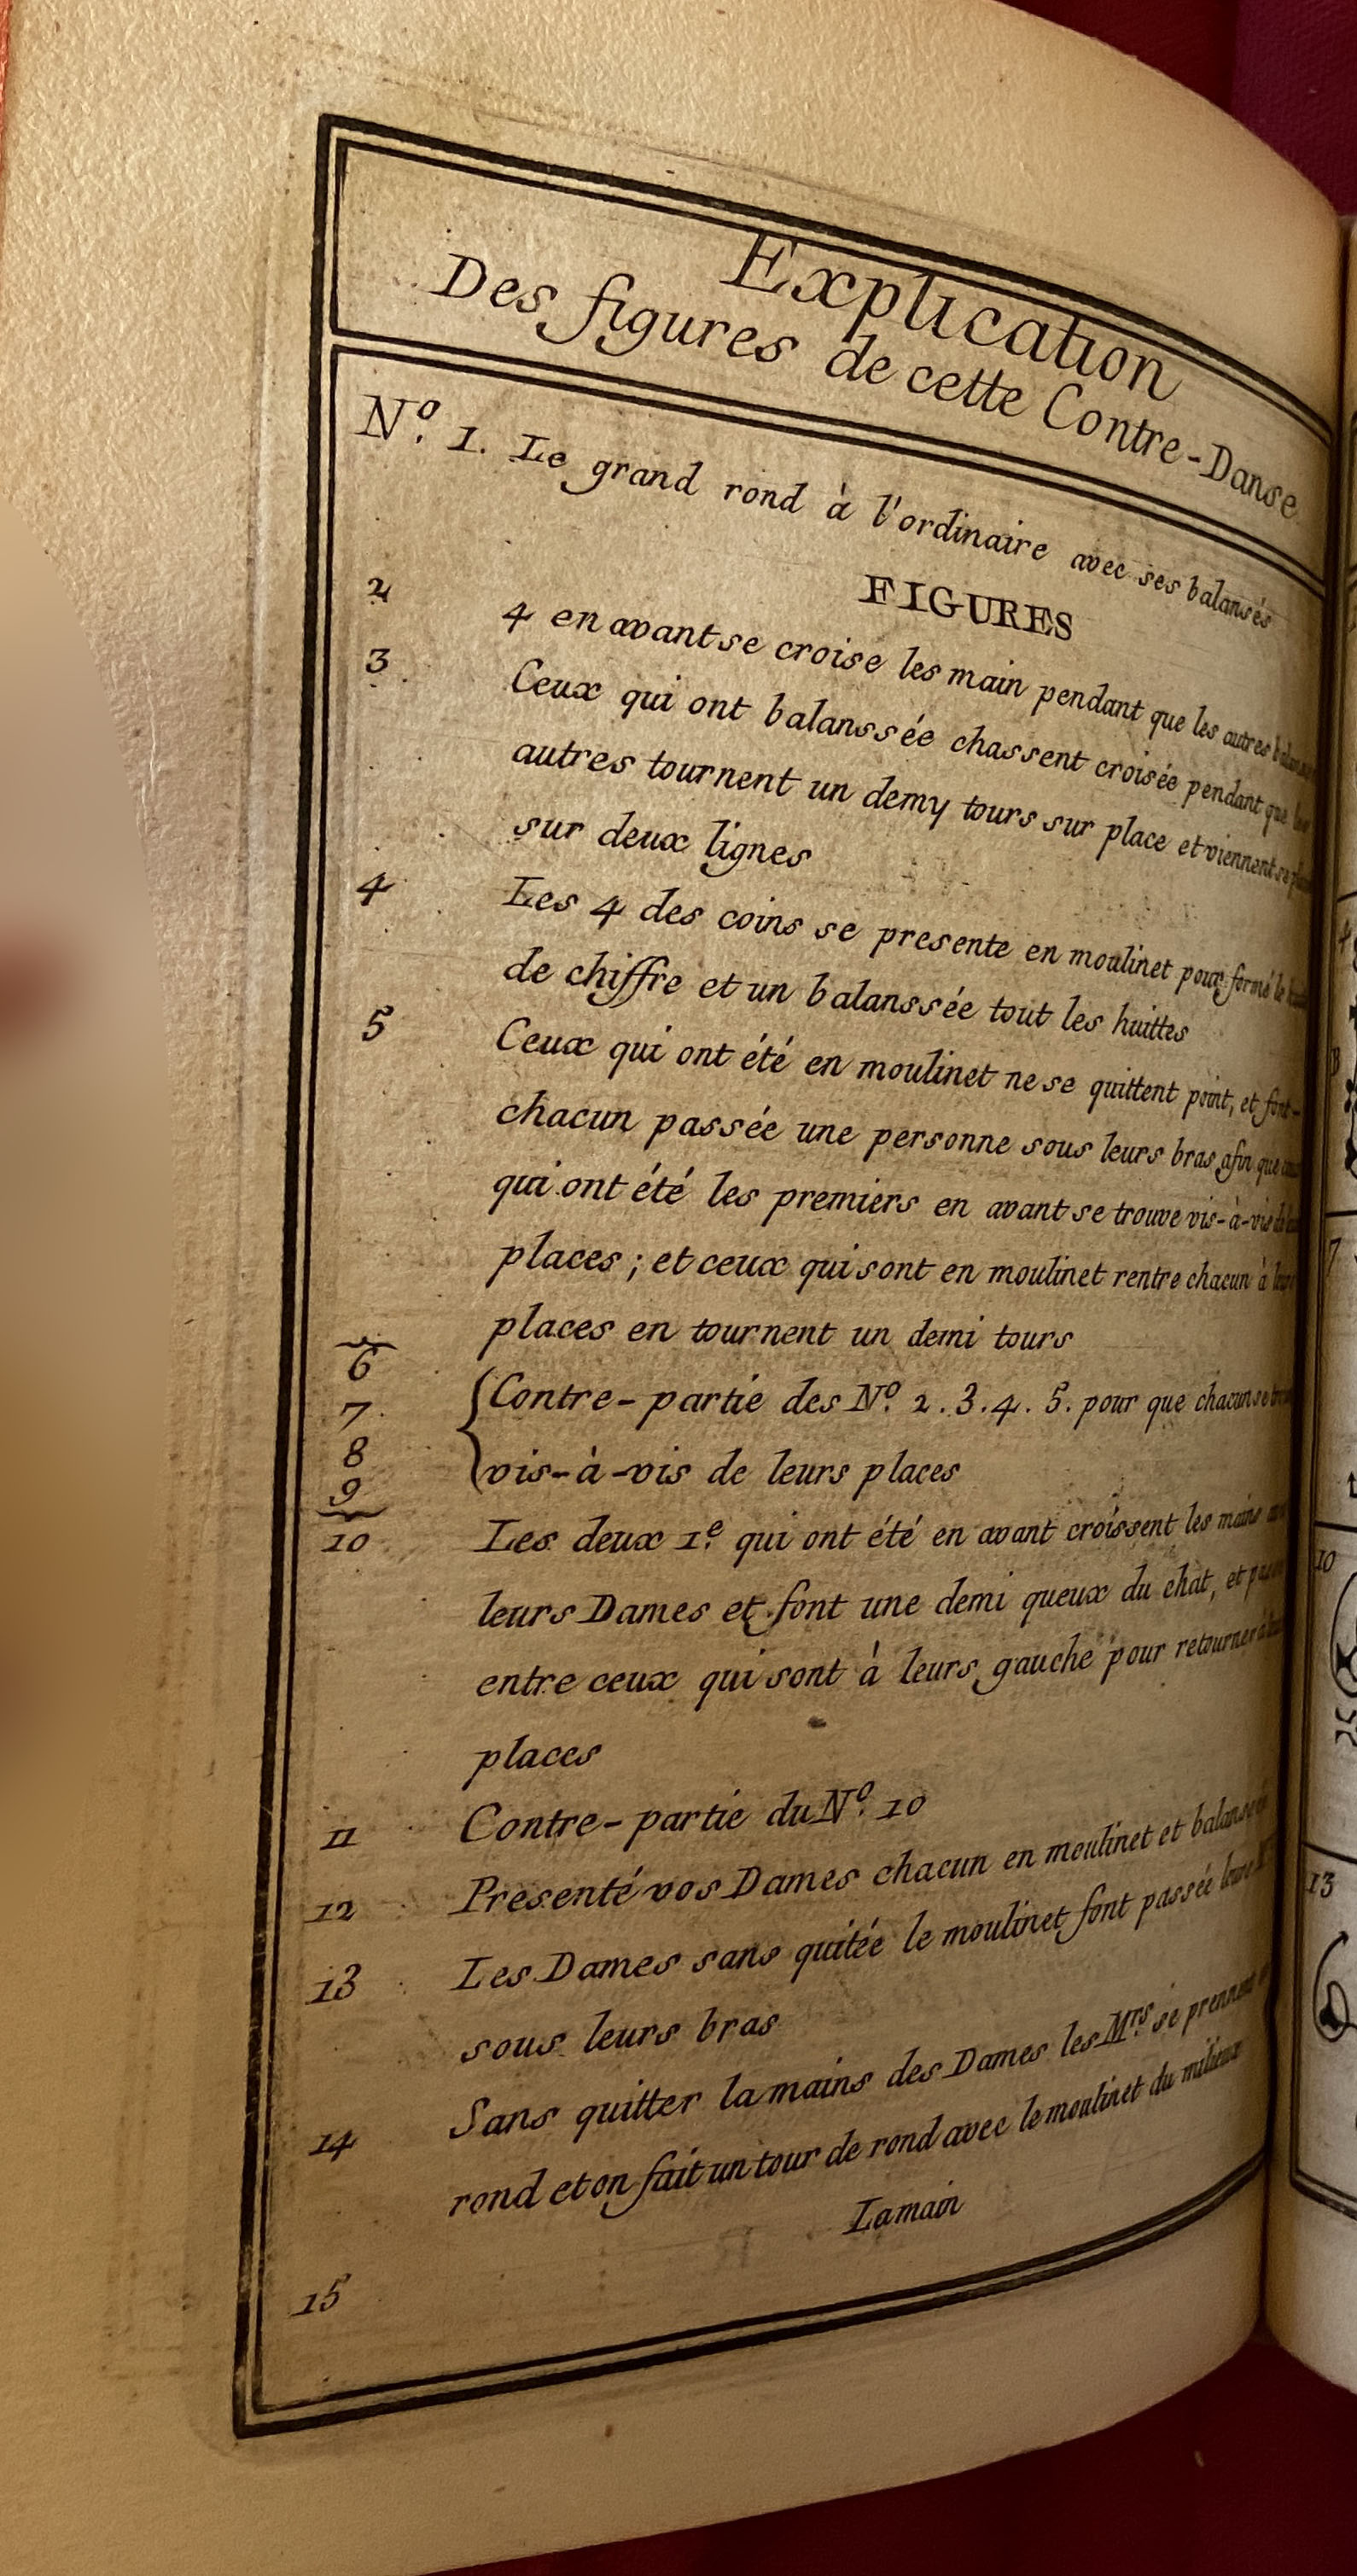 Explication
Des figures de cette Contre-Danse
N.º 1. Le grand rond à l'ordinaire avec ses balansés
FIGURES
2 4 en avant se croise les main pendant que les autres
3 Ceux qui ont balanssée chassent croisée pendant que
autres tournent un demy tours sur place et viennent se
sur deux lignes
4 Les 4 des coins se presente en moulinet pour formé le
de chiffre et un balanssée tout les huittes
5 Ceux qui ont été en moulinet ne se quittent point, et font
chacun passée une personne sous leurs bras afin que
qui ont été les premiers en avant se trouve vis-à-vis
places; et ceux qui sont en moulinet rentre chacun à
places en tournent un demi tours
6
7 Contre-partie des N.º 2. 3. 4. 5. pour que chacun se
8 vis-à-vis de leurs places
9
10 Les deux 1.e qui ont été en avant croissent les mains
leurs Dames et font une demi queux du chat, et
entre ceux qui sont à leurs gauche pour retourner
places
11 Contre-partie du N.º 10
12 Presenté vos Dames chacun en moulinet et
13 Les Dames sans quitée le moulinet font passée
sous leurs bras
14 Sans quitter la mains des Dames les M.rs se prennent
rond et on fait un tour de rond avec le moulinet du milieux
15 Lamain
7
10
13